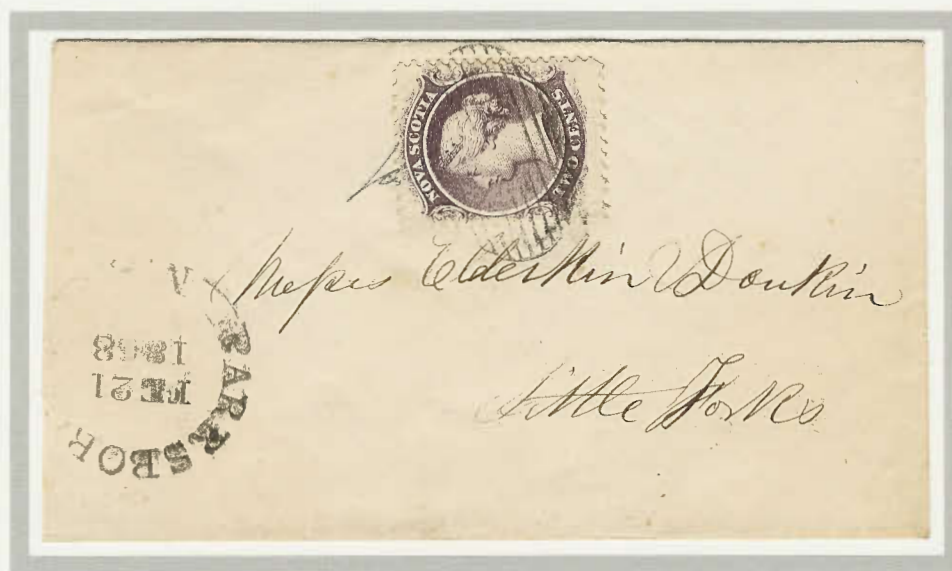 NOVA SCOTIA
TWO CENTS
Messrs Elderkin & Donkin
Little Forks
PARRSBOR
FE 21
1868